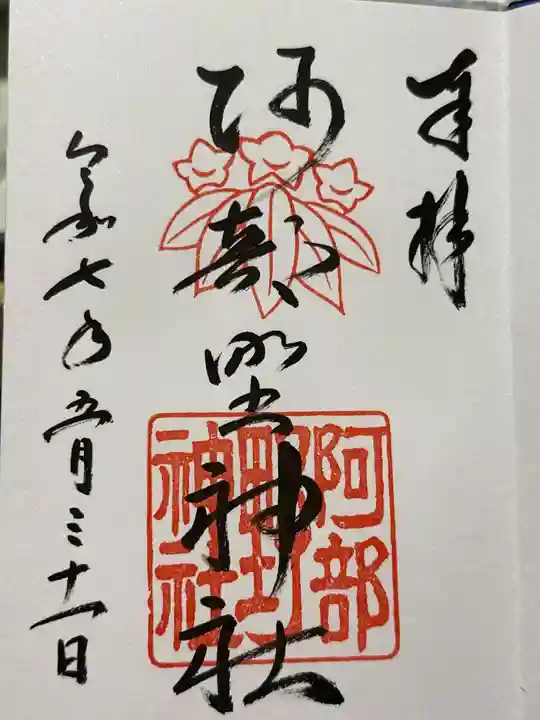 奉拝
阿部野神社
令和七年五月三十一日
阿部
野
神社